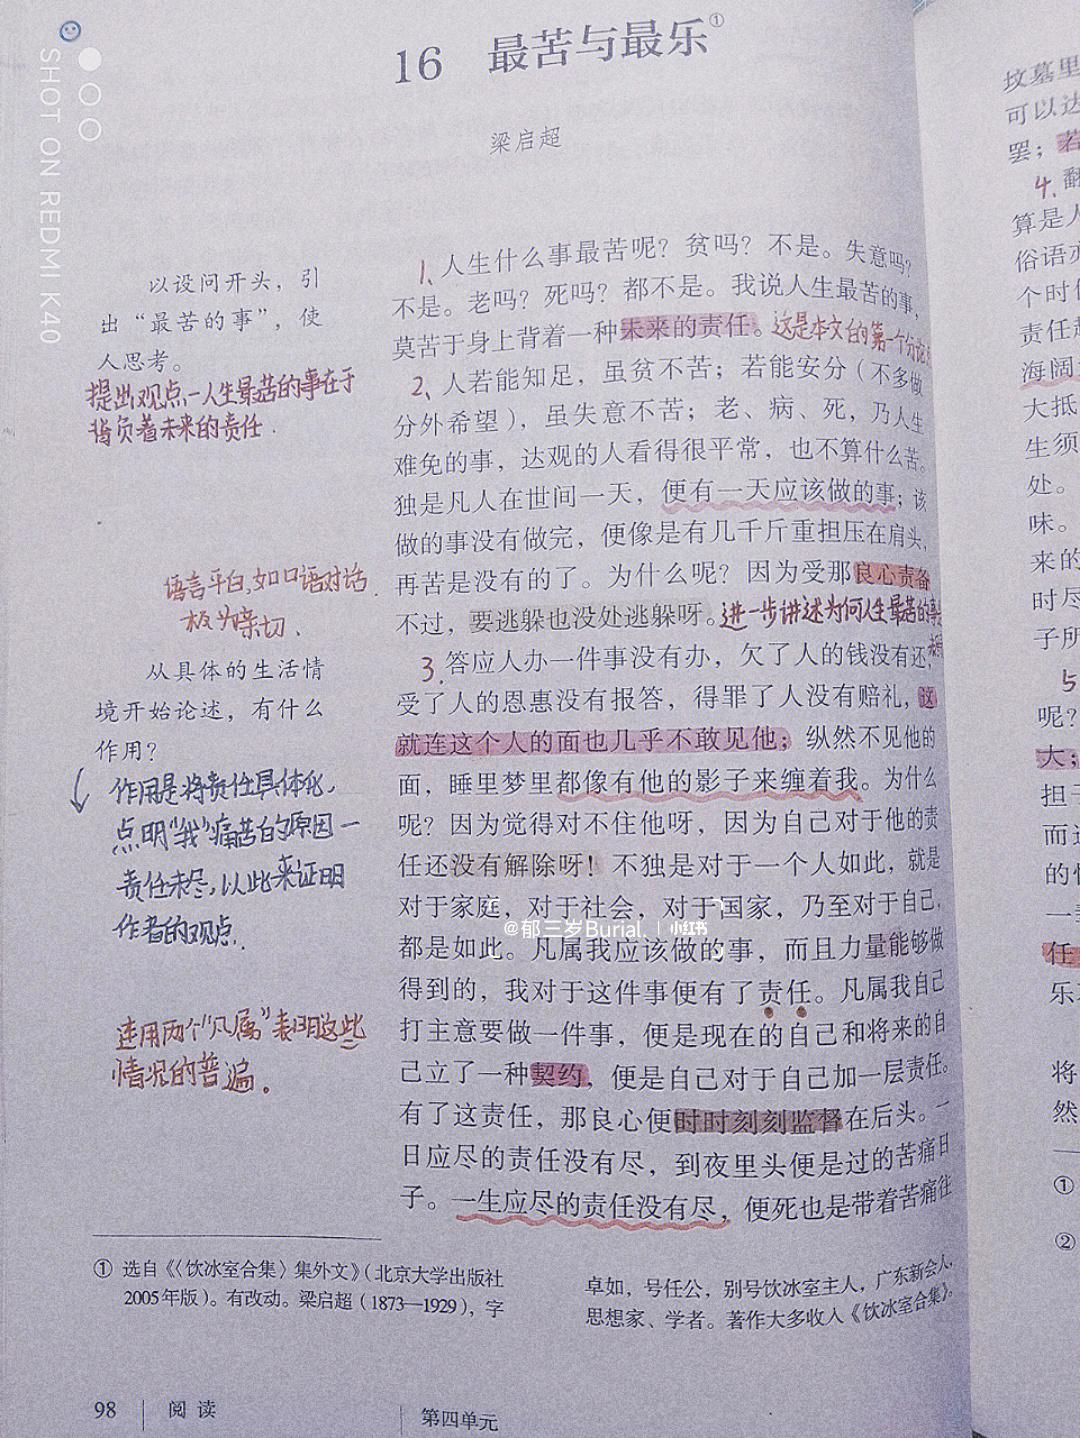 16 最苦与最乐①
梁启超
1、人生什么事最苦呢？贫吗？不是。失意吗？
不是。老吗？死吗？都不是。我说人生最苦的事，
莫苦于身上背着一种未来的责任。这是本文的第一个分论
2、人若能知足，虽贫不苦；若能安分（不多做
分外希望），虽失意不苦；老、病、死，乃人生
难免的事，达观的人看得很平常，也不算什么苦。
独是凡人在世间一天，便有一天应该做的事；该
做的事没有做完，便像是有几千斤重担压在肩头，
再苦是没有的了。为什么呢？因为受那良心责备
不过，要逃躲也没处逃躲呀。进一步讲述为何人生最苦的事是
3.答应人办一件事没有办，欠了人的钱没有还，
受了人的恩惠没有报答，得罪了人没有赔礼，这
就连这个人的面也几乎不敢见他；纵然不见他的
面，睡里梦里都像有他的影子来缠着我。为什么
呢？因为觉得对不住他呀，因为自己对于他的责
任还没有解除呀！不独是对于一个人如此，就是
对于家庭，对于社会，对于国家，乃至对于自己，
都是如此。凡属我应该做的事，而且力量能够做
得到的，我对于这件事便有了责任。凡属我自己
打主意要做一件事，便是现在的自己和将来的自
己立了一种契约，便是自己对于自己加一层责任。
有了这责任，那良心便时时刻刻监督在后头。一
日应尽的责任没有尽，到夜里头便是过的苦痛日
子。一生应尽的责任没有尽，便死也是带着苦痛往
以设问开头，引
出“最苦的事”，使
人思考。
提出观点一人生最苦的事在于
背负着未来的责任.
语言平白,如口语对话.
极为亲切.
从具体的生活情
境开始论述，有什么
作用？
作用是将责任具体化,
点明"我"痛苦的原因一
责任未尽,以此来证明
作者的观点.
连用两个"凡属"表明这些
情况的普遍。
① 选自《〈饮冰室合集〉集外文》（北京大学出版社
2005年版）。有改动。梁启超（1873—1929），字
卓如，号任公，别号饮冰室主人，广东新会人，
思想家、学者。著作大多收入《饮冰室合集》。
98 阅读
第四单元
坟墓里
可以达
罢；若
4.翻
算是人
俗语
个时
责任
海阔
大抵
生须
处。
味。
来的
时尽
子所
5
呢？
大；
担
而
的
一
任
乐
将
然
①
②
SHOT ON REDMI K40
@郁三岁Burial. 小红书